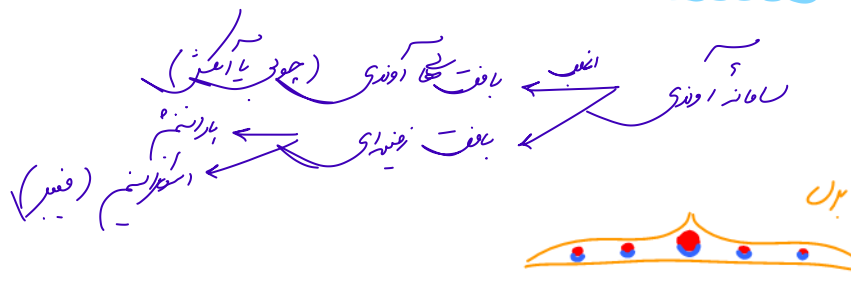 سامانهٔ آوندی
اغلب
بافت های آوندی (چوبی یا آبکش)
بافت زمینه‌ای
پارانشیم
اسکلرانشیم (فیبر)
برگ